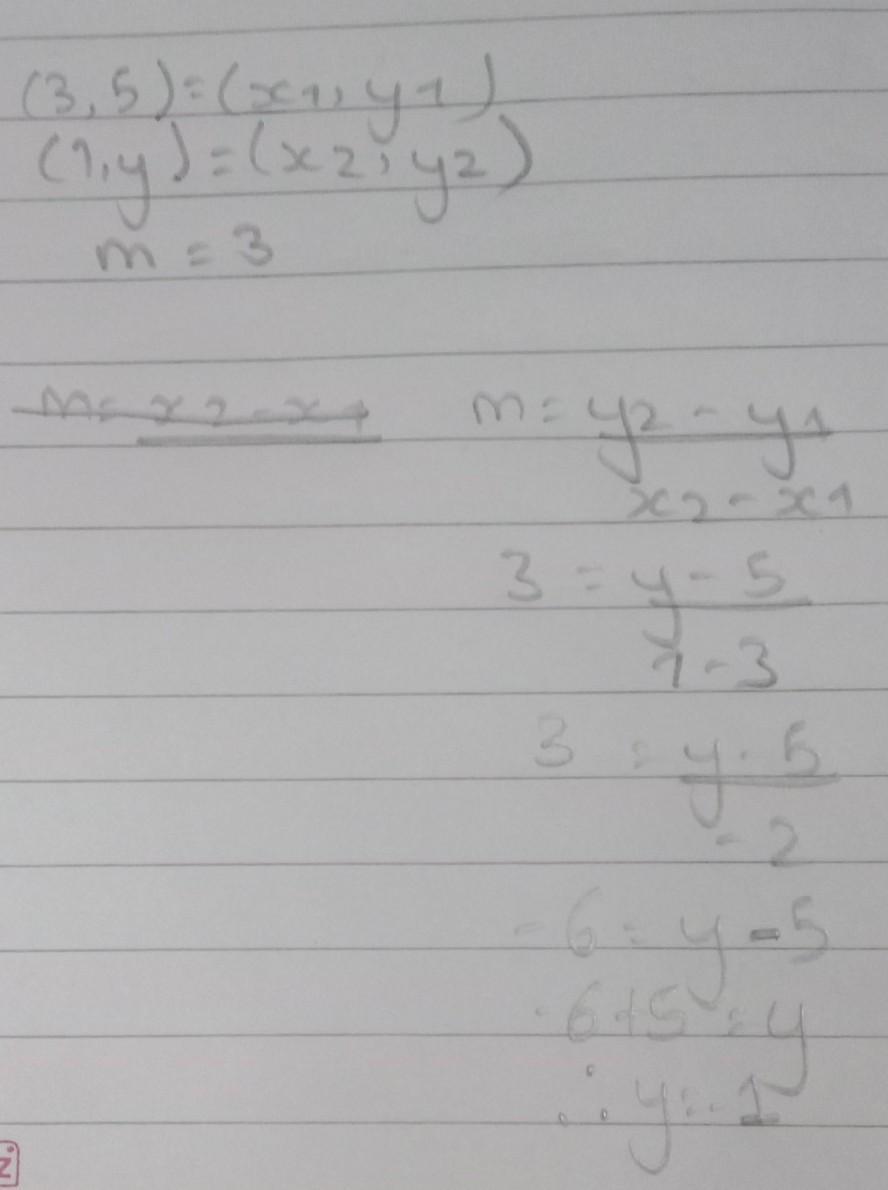 (3,5)=(x1,y1)
(1,y)=(x2,y2)
m=3
m= x2-x1
m= y2-y1
x2-x1
3 = y-5
1-3
3 = y-5
-2
-6=y-5
-6+5=y
∴ y=-1